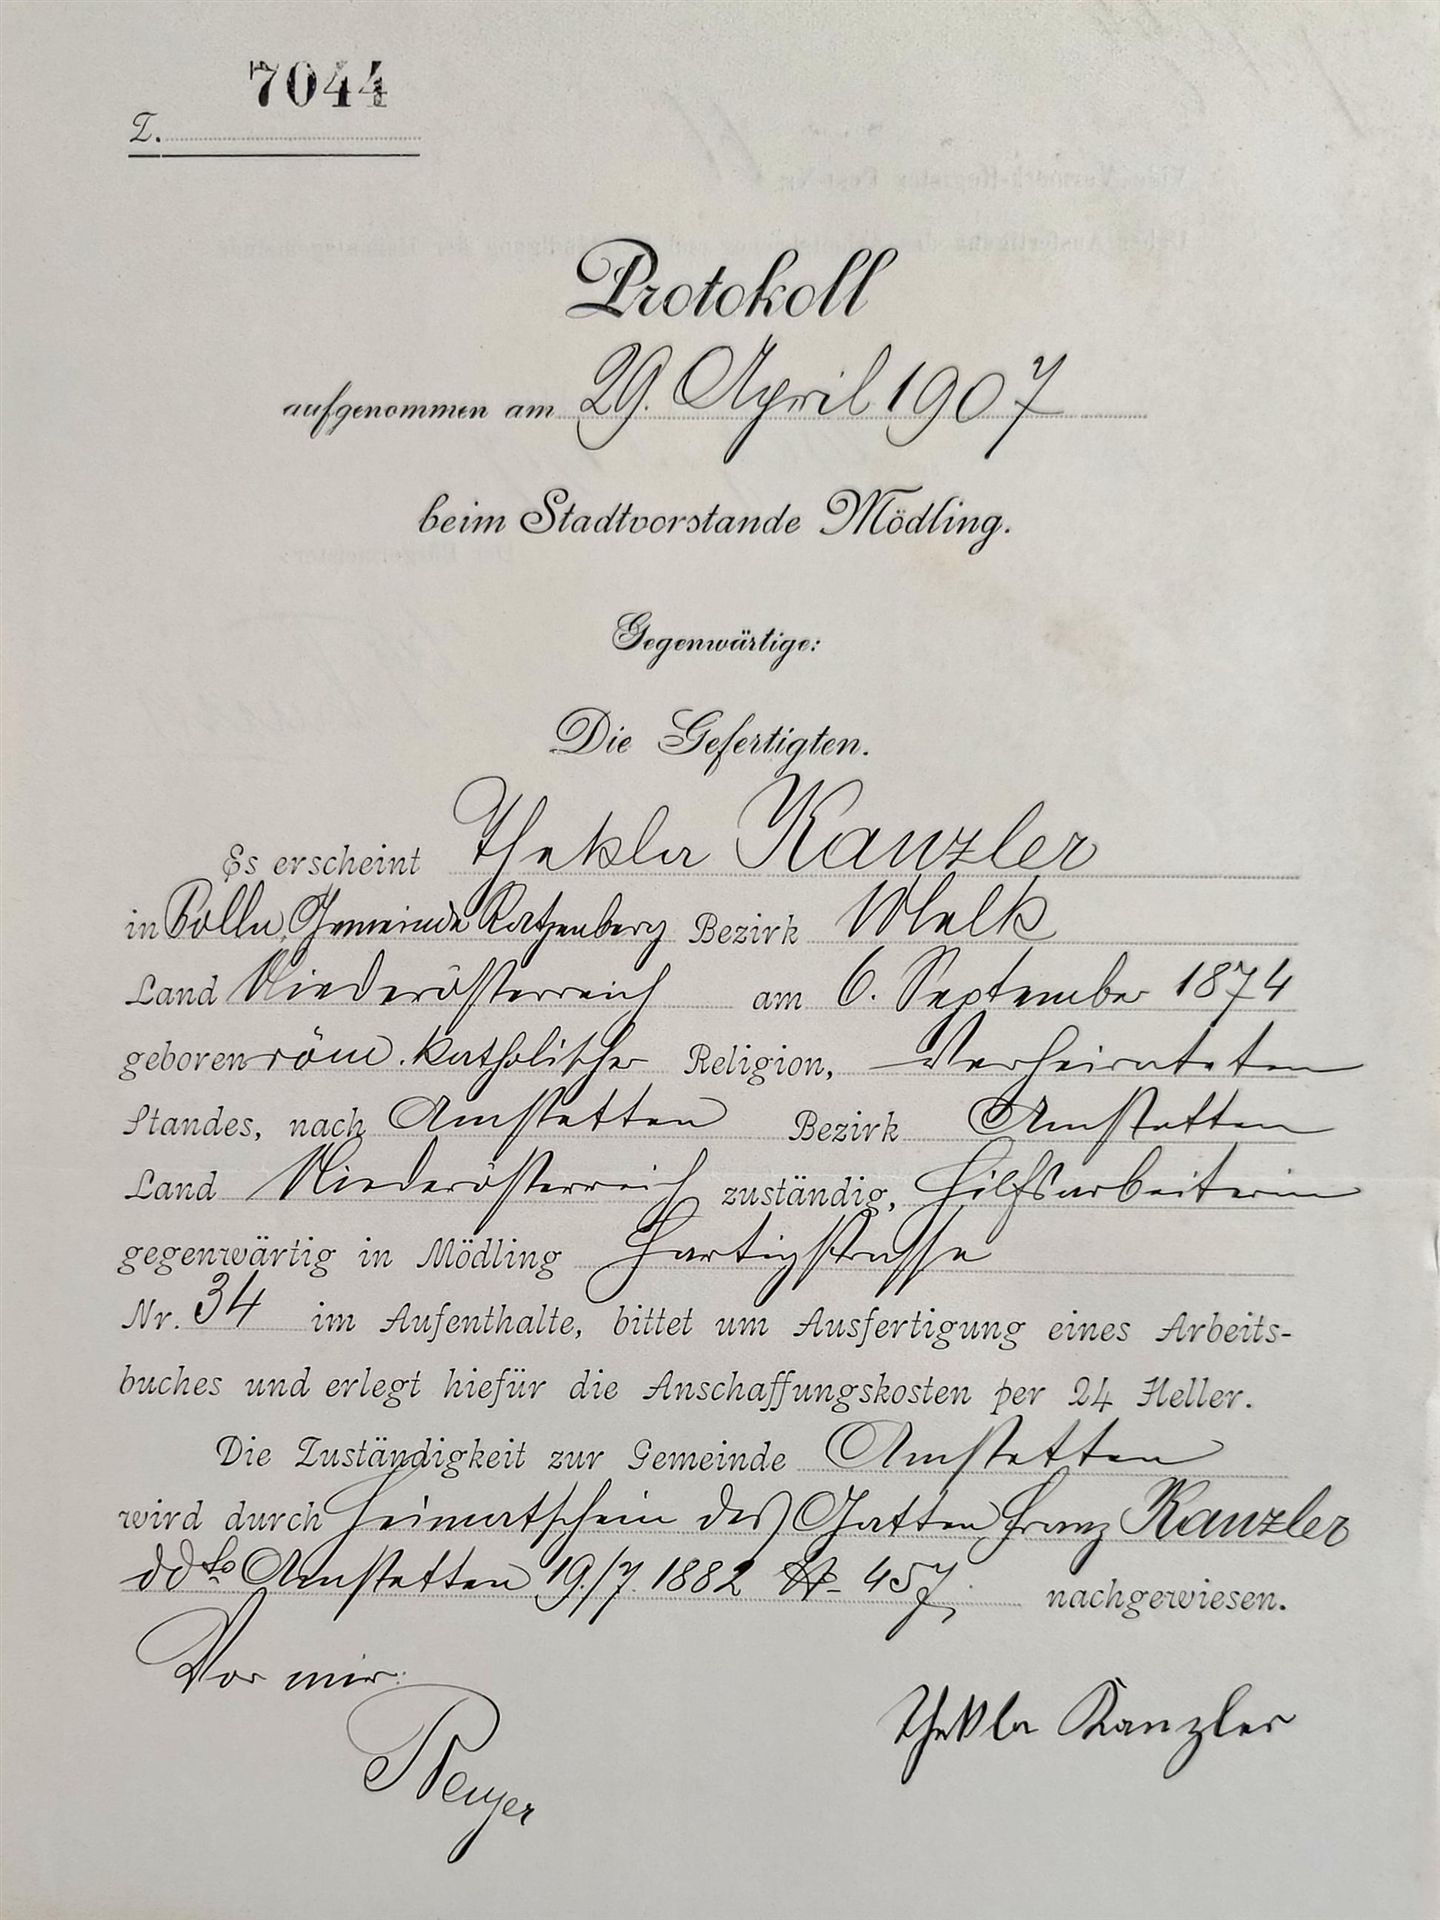 7044
Z.
Protokoll
aufgenommen am 29. April 1907
beim Stadtvorstande Mödling.
Gegenwärtige:
Die Gefertigten.
Es erscheint Thekla Kanzler
in Gemeinde Ratzenberg Bezirk Melk
Land Niederösterreich am 6. September 1874
geboren röm. katholischer Religion, verheirateten
Standes, nach Amstetten Bezirk Amstetten
Land Niederösterreich zuständig, Hilfsarbeiterin
gegenwärtig in Mödling Hartigstrasse
Nr. 34 im Aufenthalte, bittet um Ausfertigung eines Arbeits-
buches und erlegt hiefür die Anschaffungskosten per 24 Heller.
Die Zuständigkeit zur Gemeinde Amstetten
wird durch Heimatschein des Gatten Franz Kanzler
ddto Amstetten 19./7. 1882 457 nachgewiesen.
Vor mir:
Thekla Kanzler